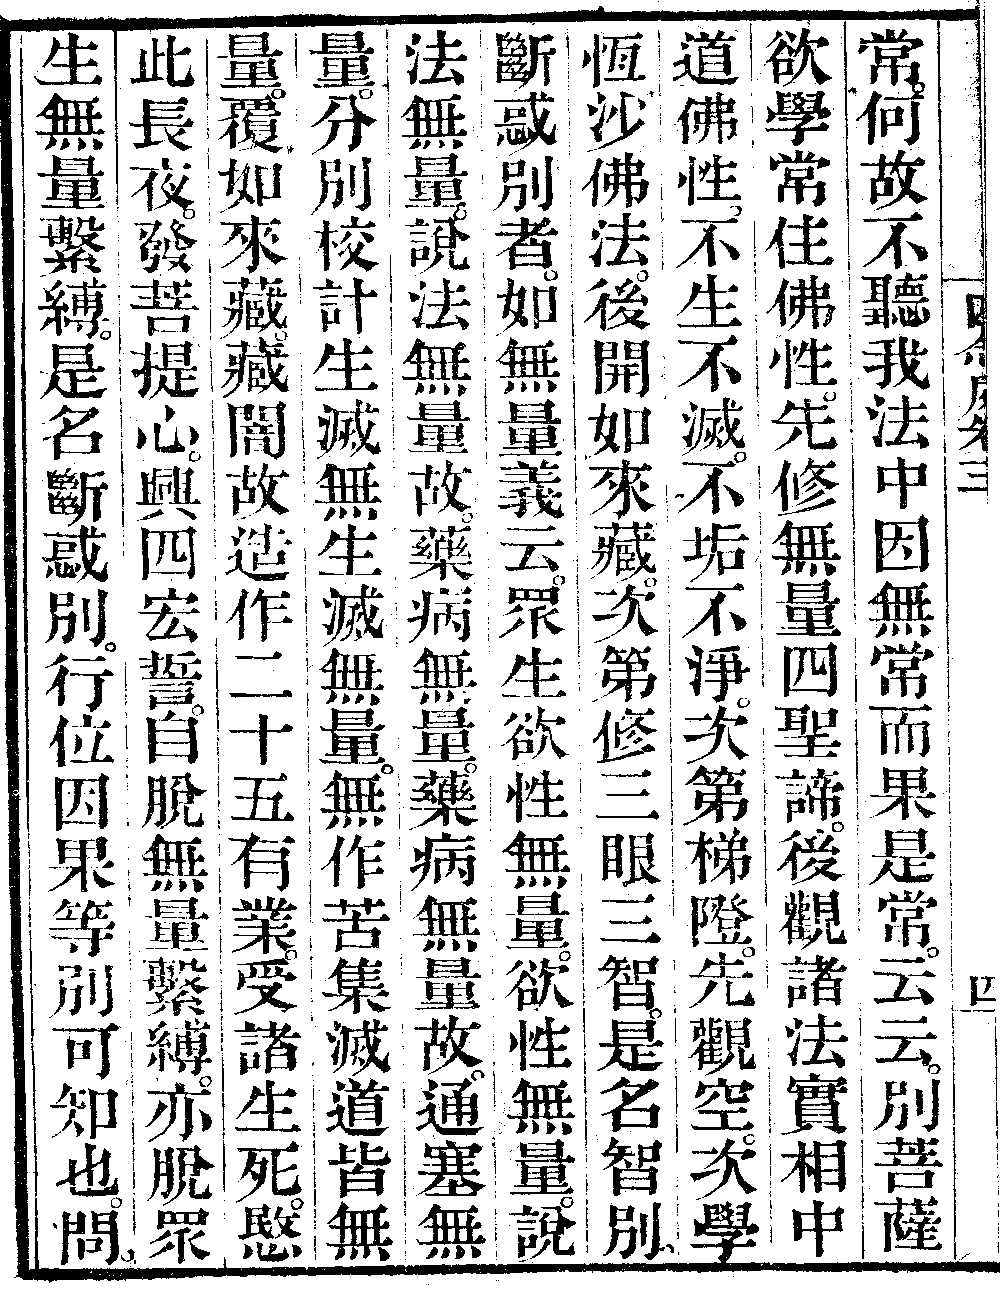 常。何故不聽我法中因無常而果是常。云云。別菩薩
欲學常住佛性。先修無量四聖諦。後觀諸法實相中
道佛性。不生不滅。不垢不淨。次第梯隥。先觀空。次學
恆沙佛法。後開如來藏。次第修三眼三智。是名智別。
斷惑別者。如無量義云。眾生欲性無量。欲性無量。說
法無量。說法無量故。藥病無量。藥病無量故。通塞無
量。分別校計生滅無生滅無量。無作苦集滅道皆無
量。覆如來藏。藏闇故造作二十五有業。受諸生死。愍
此長夜。發菩提心。興四宏誓。自脫無量繫縛。亦脫眾
生無量繫縛。是名斷惑別。行位因果等別可知也。問。
四